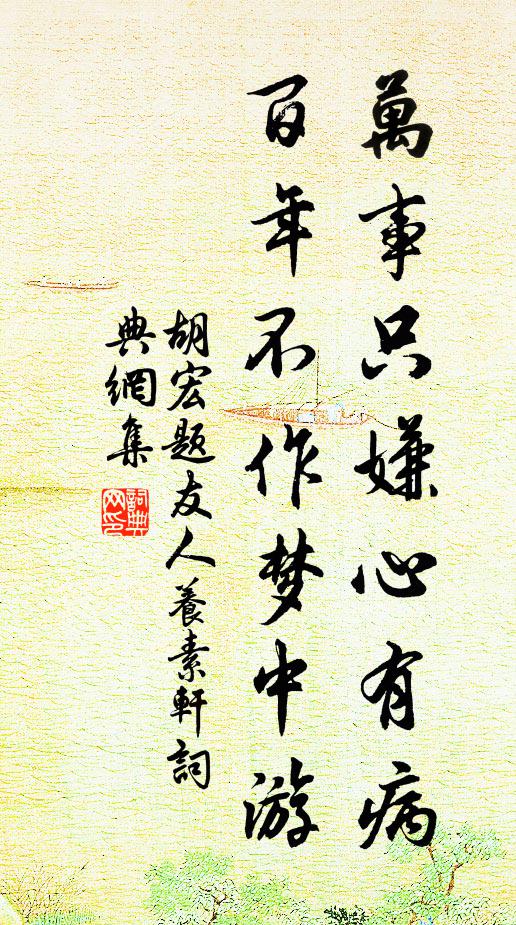 萬事只嫌心有病
百年不作梦中游
胡宏题友人養素軒詞
典網集
詞典
网印